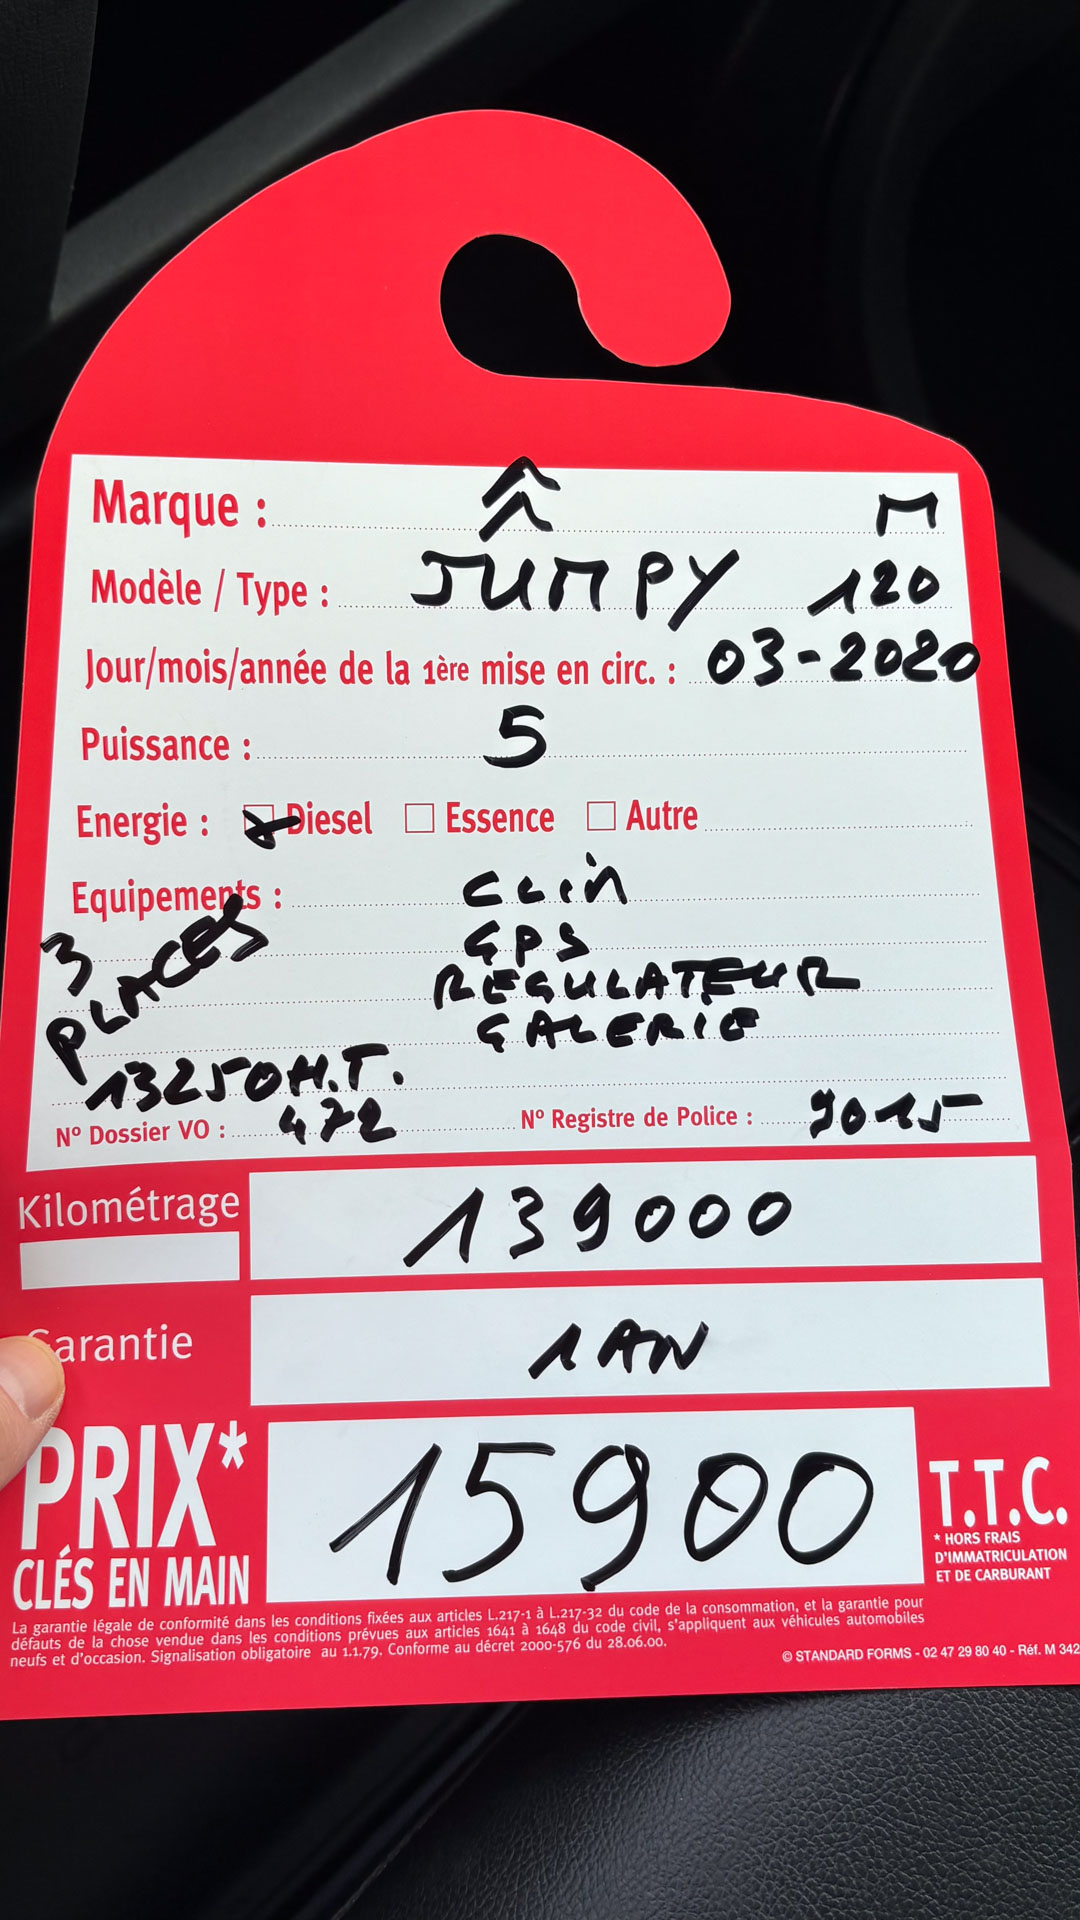 Marque : M
Modèle / Type : JUMPY 120
Jour/mois/année de la 1ère mise en circ. : 03-2020
Puissance : 5
Energie : Diesel Essence Autre
Equipements : CLIM
GPS
REGULATEUR
GALERIE
3 PLACES
13250 H.T.
N° Dossier VO : 472 N° Registre de Police : 9015
Kilométrage 139000
Garantie 1 AN
PRIX* 15900 T.T.C.
CLÉS EN MAIN
* HORS FRAIS
D'IMMATRICULATION
ET DE CARBURANT
La garantie légale de conformité dans les conditions fixées aux articles L.217-1 à L.217-32 du code de la consommation, et la garantie pour
défauts de la chose vendue dans les conditions prévues aux articles 1641 à 1648 du code civil, s'appliquent aux véhicules automobiles
neufs et d'occasion. Signalisation obligatoire au 1.1.79. Conforme au décret 2000-576 du 28.06.00.
© STANDARD FORMS - 02 47 29 80 40 - Réf. M 342